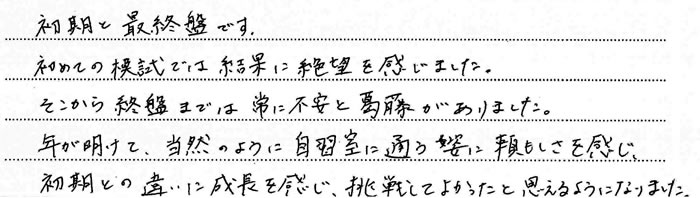 初期と最終盤です。
初めての模試では結果に絶望を感じました。
そこから終盤までは常に不安と葛藤がありました。
年が明けて、当然のように自習室に通う姿に頼もしさを感じ、
初期との違いに成長を感じ、挑戦してよかったと思えるようになりました。